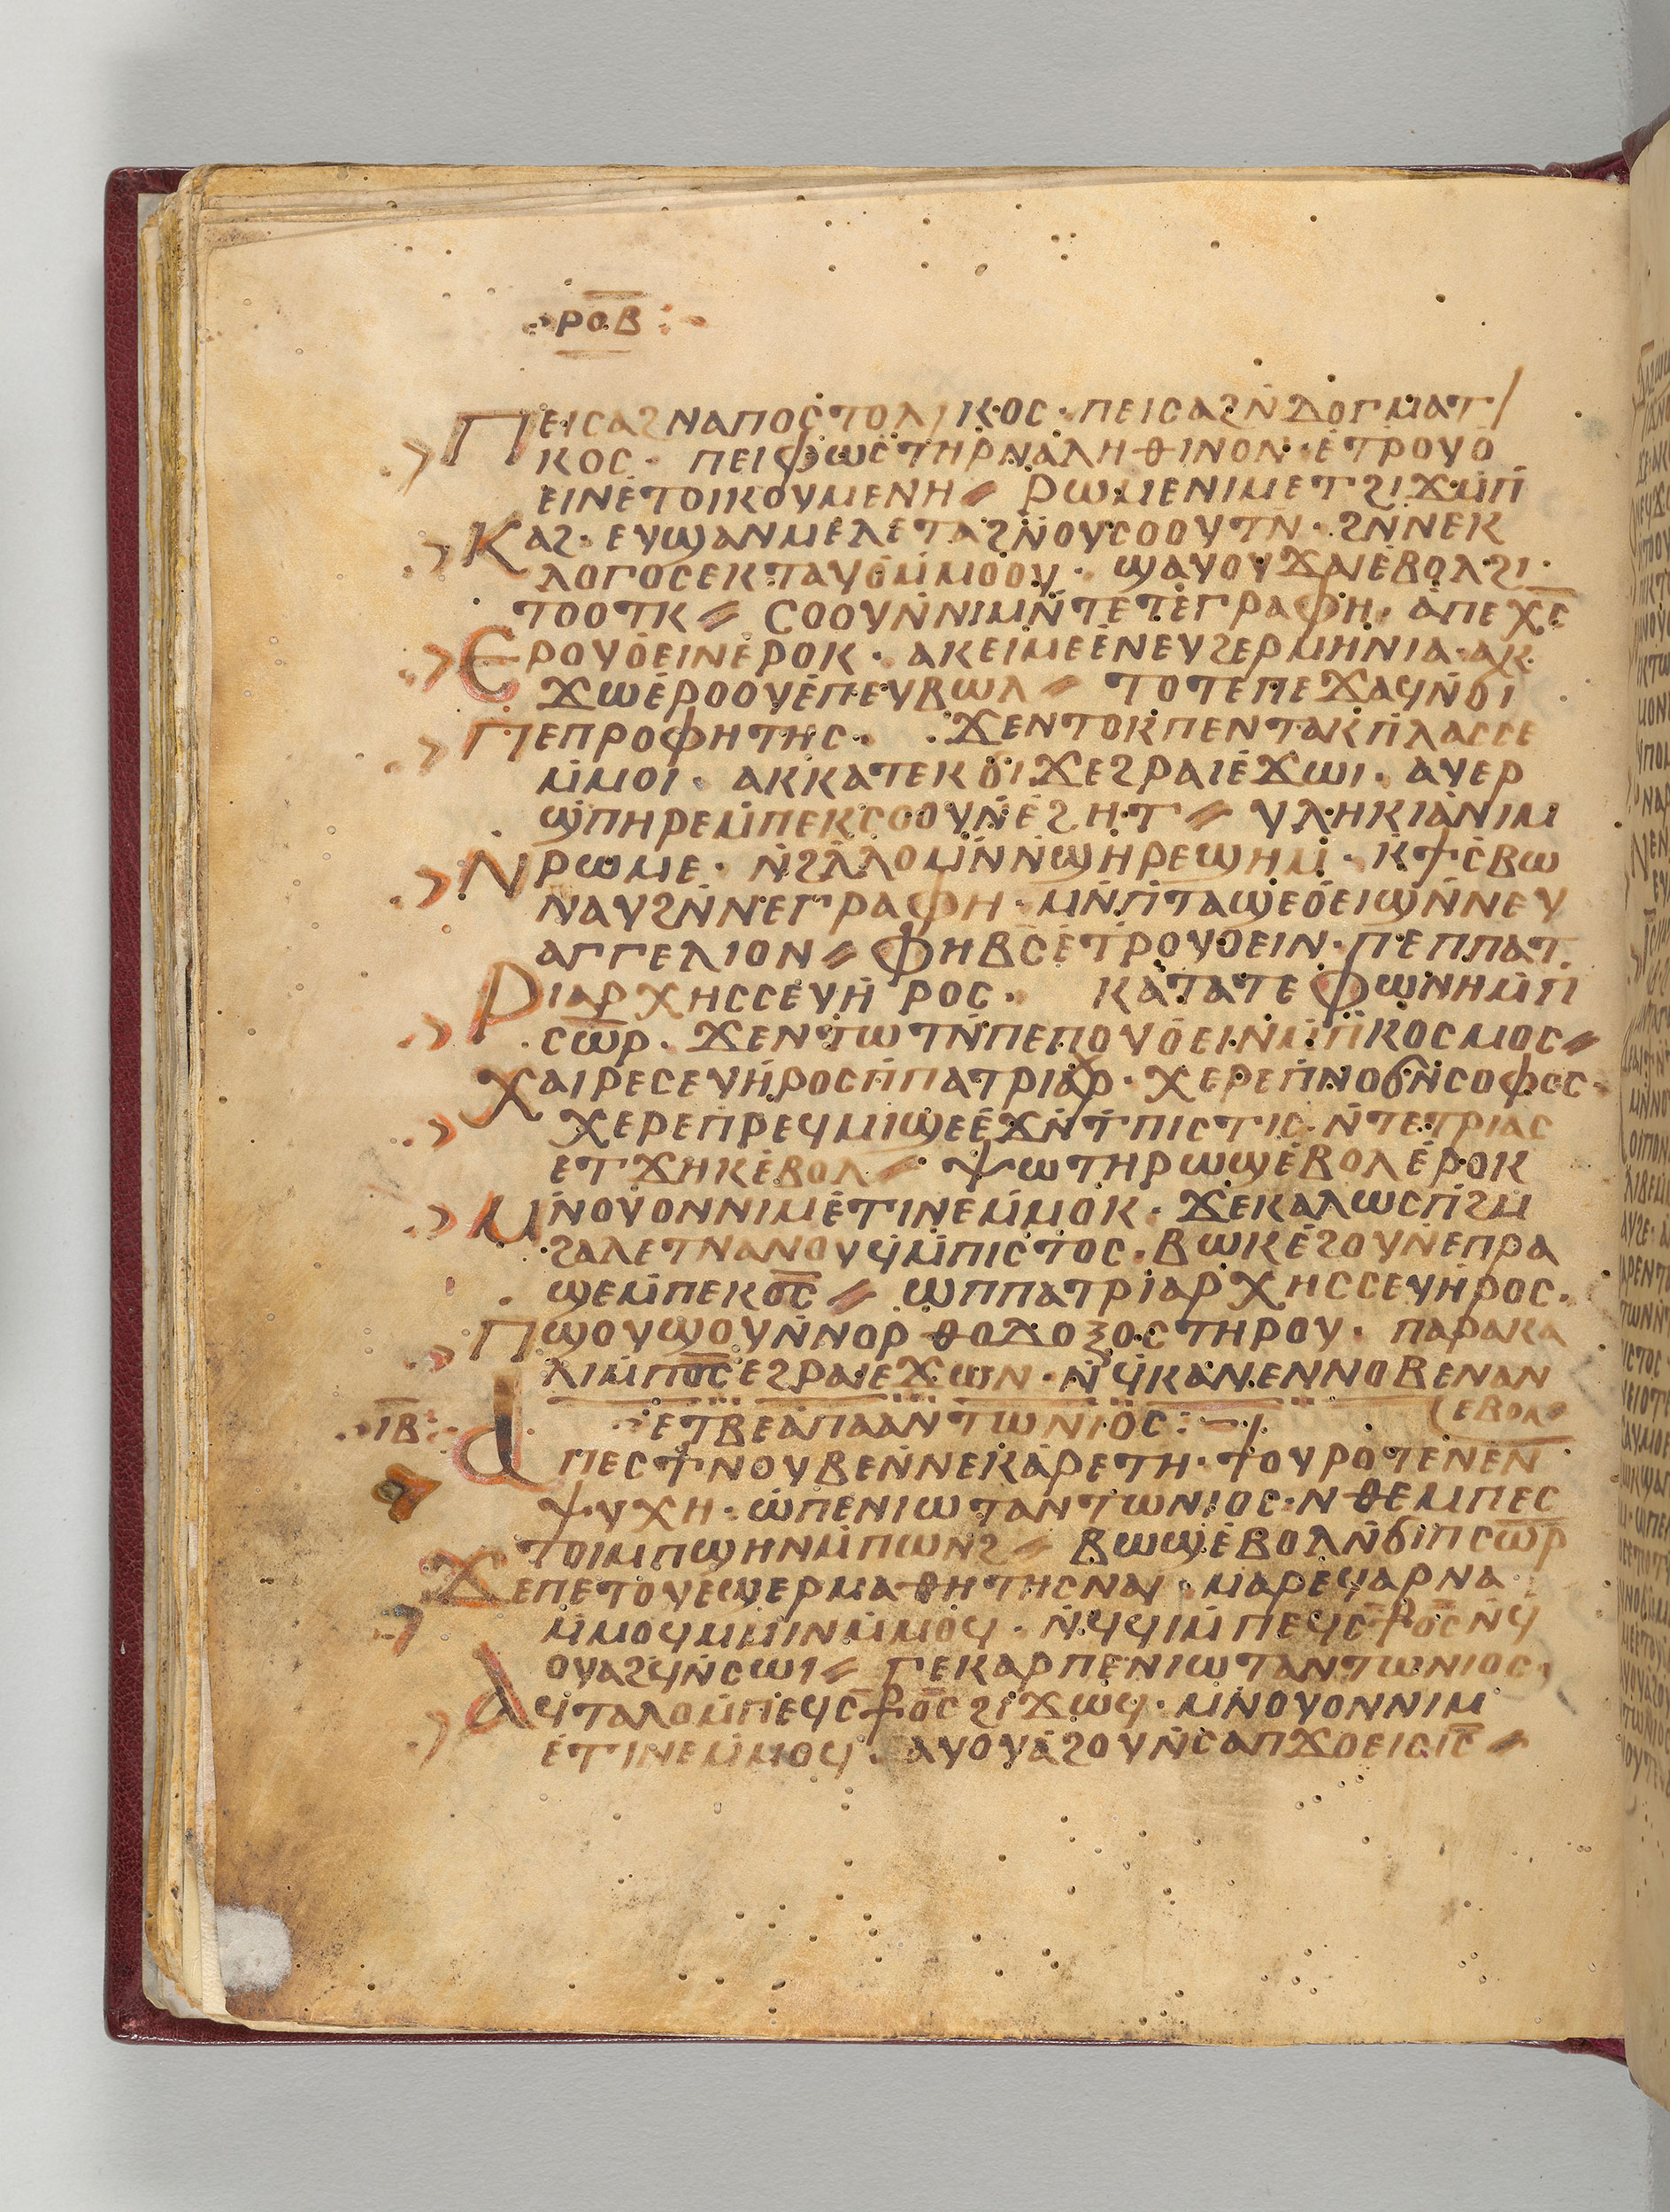 ⲣⲟ̅ⲃ
ⲡⲉⲓⲥⲁϩⲛⲁⲡⲟⲥⲧⲟⲗⲓⲕⲟⲥ· ⲡⲉⲓⲥⲁϩⲛ̇ⲇⲟⲅⲙⲁⲧⲓ
ⲕⲟⲥ· ⲡⲉⲓⲫⲱⲥⲧⲏⲣⲛⲁⲗⲏⲑⲓⲛⲟⲛ· ⲉ̇ⲧⲣⲟⲩⲟ̇
ⲉⲓⲛⲉ̇ⲧⲟⲓⲕⲟⲩⲙⲉⲛⲏ⸗ ⲣⲱⲙⲉⲛⲓⲙⲉⲧϩⲓϫⲙ̇ⲡ̇
ⲕⲁϩ· ⲉⲩϣⲁⲛⲙⲉⲗⲉⲧⲁϩⲛ̇ⲟⲩⲥⲟⲟⲩⲧⲛ̇· ϩⲛ̇ⲛⲉⲕ
ⲗⲟⲅⲟⲥⲉⲕⲧⲁⲩⲟ̇ⲙ̇ⲙⲟⲟⲩ· ϣⲁⲩⲟⲩϫⲁⲓⲉ̇ⲃⲟⲗϩⲓ·
ⲧⲟⲟⲧⲕ⸗ ⲥⲟⲟⲩⲛ̇ⲛⲓⲙⲛ̇ⲧⲉⲧⲉ̇ⲅⲣⲁⲫⲏ· ⲁ̇ⲡⲉⲭ̅ⲥ̅
ⲉⲣⲟⲩⲟ̇ⲉⲓⲛⲉ̇ⲣⲟⲕ· ⲁⲕⲉⲓⲙⲉⲉ̇ⲛⲉⲩϩⲉⲣⲙⲏⲛⲓⲁ· ⲁⲕ
ϫⲱⲉ̇ⲣⲟⲟⲩⲉ̇ⲡⲉⲩⲃⲱⲗ⸗ ⲧⲟⲧⲉⲡⲉϫⲁϥⲛ̇ϭⲓ
ⲡⲉⲡⲣⲟⲫⲏⲧⲏⲥ· ϫⲉⲛⲧⲟⲕⲡⲉⲛⲧⲁⲕⲡ̇ⲗⲁⲥⲥⲉ
ⲙ̇ⲙⲟⲓ· ⲁⲕⲕⲁⲧⲉⲕϭⲓϫⲉϩⲣⲁⲓⲉ̇ϫⲱⲓ· ⲁⲩⲉⲣ
ϣ̇ⲡⲏⲣⲉⲙ̇ⲡⲉⲕⲥⲟⲟⲩⲛ̇ⲉ̇ϩⲏⲧ⸗ ⲩⲗⲏⲕⲓⲁ̇ⲛⲓⲙ
ⲛ̇ⲣⲱⲙⲉ· ⲛ̇ϩⲗ̇ⲗⲟⲙⲛ̇ⲛ̇ϣⲏⲣⲉϣⲏⲙ· ⲕϯⲥⲃⲱ
ⲛⲁⲩϩⲛ̇ⲛⲉⲅⲣⲁⲫⲏ· ⲙⲛ̇ⲡ̇ⲧⲁϣⲉⲟ̇ⲉⲓϣⲛ̇ⲛⲉⲩ
ⲁⲅⲅⲉⲗⲓⲟⲛ⸗ ⲫⲏⲃ̇ⲥ̇ⲉ̇ⲧⲣⲟⲩⲟ̇ⲉⲓⲛ· ⲡⲉⲡⲡⲁⲧ
ⲣⲓⲁⲣⲭⲏⲥⲥⲉⲩⲏ̇ⲣⲟⲥ· ⲕⲁⲧⲁⲧⲉⲫⲱⲛⲏⲙ̇ⲡ̇
ⲥⲱ̅ⲣ· ϫⲉⲛⲧⲱⲧⲛ̇ⲡⲉⲡⲟⲩⲟ̇ⲉⲓⲛⲙ̇ⲡ̇ⲕⲟⲥⲙⲟⲥ⸗
ⲭⲁⲓⲣⲉⲥⲉⲩⲏ̇ⲣⲟⲥⲡ̇ⲡⲁⲧⲣⲓⲁⲣⲭ· ⲭⲉⲣⲉⲡ̇ⲛⲟϭⲛ̇ⲥⲟⲫⲟⲥ·
ⲭⲉⲣⲉⲡ̇ⲣⲉϥⲙⲓϣⲉⲉ̇ϫⲛ̇ⲧ̇ⲡⲓⲥⲧⲓⲥ· ⲛ̇ⲧⲉⲧⲣⲓⲁⲥ
ⲉⲧϫⲏⲕⲉ̇ⲃⲟⲗ⸗ ⲯⲱⲧⲏⲣⲱϣⲉ̇ⲃⲟⲗⲉ̇ⲣⲟⲕ
ⲙⲛ̇ⲟⲩⲟⲛⲛⲓⲙⲉ̇ⲧⲓⲛⲉⲙ̇ⲙⲟⲕ· ϫⲉⲕⲁⲗⲱⲥⲡ̇ϩⲙ
ϩⲁⲗⲉⲧⲛⲁⲛⲟⲩϥⲙ̇ⲡⲓⲥⲧⲟⲥ· ⲃⲱⲕⲉ̇ϩⲟⲩⲛⲉⲡⲣⲁ
ϣⲉⲙ̇ⲡⲉⲕⲟ̅ⲥ̅⸗ ⲱⲡⲡⲁⲧⲣⲓⲁⲣⲭⲏⲥⲥⲉⲩⲏ̇ⲣⲟⲥ·
ⲡϣⲟⲩϣⲟⲩⲛ̇ⲛⲟⲣⲑⲟⲇⲟⲝⲟⲥⲧⲏⲣⲟⲩ· ⲡⲁⲣⲁⲕⲁ
ⲗⲓⲙ̇ⲡⲟ̅ⲥ̅ⲉϩⲣⲁⲓⲉϫⲱⲛ· ⲛ̇ϥⲕⲁⲛⲉⲛⲛⲟⲃⲉⲛⲁⲛ
ⲉⲃⲟⲗ
ⲓ̅ⲃ̅ ⲉⲧⲃⲉⲁⲡⲁⲁⲛⲧⲱⲛⲓⲟⲥ
ⲁⲡⲉⲥϯⲛⲟⲩⲃⲉⲛ̇ⲛⲉⲕⲁ̇ⲣⲉⲧⲏ· ϯⲟⲩⲣⲟⲧⲉⲛⲉⲛ
ⲯⲩⲭⲏ· ⲱ̇ⲡⲉⲛⲓⲱⲧⲁⲛⲧⲱⲛⲓⲟⲥ· ⲛⲑⲉⲙⲡⲉⲥ
ⲧⲟⲓⲙⲡϣⲏⲛⲙ̇ⲡⲱⲛϩ⸗ ⲃⲱϣⲉ̇ⲃⲟⲗⲛ̇ϭⲓⲡⲥⲱ̅ⲣ
ϫⲉⲡⲉⲧⲟⲩⲉϣⲉⲣⲙⲁⲑⲏⲧⲏⲥⲛⲁⲓ· ⲙⲁⲣⲉϥⲁⲣⲛⲁ
ⲙ̇ⲙⲟϥⲙ̇ⲙⲓⲛⲙ̇ⲙⲟϥ· ⲛ̇ϥϥⲓⲙ̇ⲡⲉϥⲥ⳨ⲟ̅ⲥ̅ⲛ̇ϥ
ⲟⲩⲁϩϥ̇ⲛ̇ⲥⲱⲓ⸗ ⲅⲉⲕⲁⲣⲡⲉⲛⲓⲱⲧⲁⲛⲧⲱⲛⲓⲟⲥ·
ⲁϥⲧⲁⲗⲟⲙ̇ⲡⲉϥⲥ⳨ⲟ̅ⲥ̅ϩⲓϫⲱϥ· ⲙⲛ̇ⲟⲩⲟⲛⲛⲓⲙ
ⲉ̇ⲧⲓⲛⲉⲙ̇ⲙⲟϥ· ⲁⲩⲟⲩⲁ̇ϩⲟⲩⲛ̇ⲥⲁⲡϫⲟⲉⲓⲥⲓ̅ⲥ̅⸗